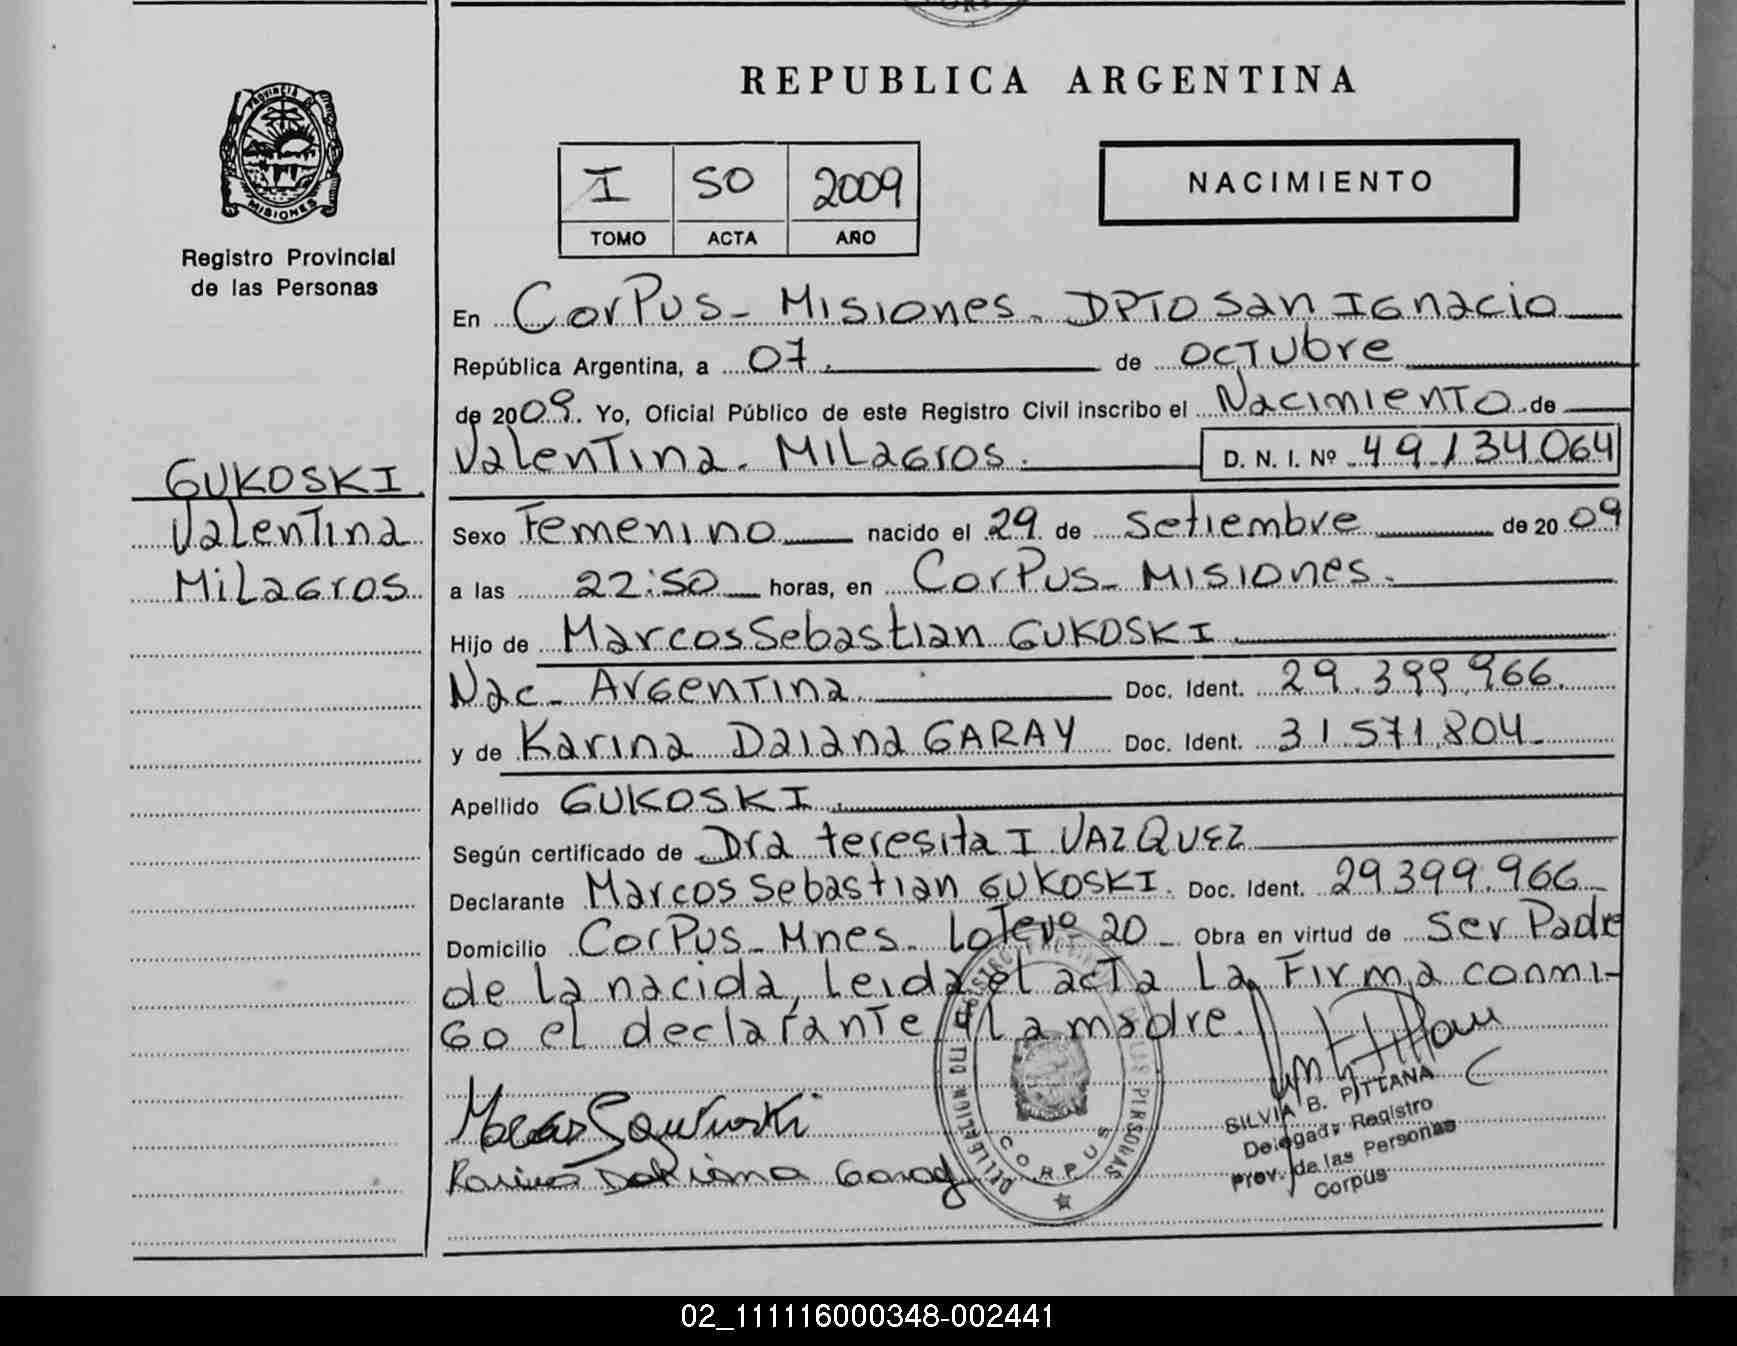 REPUBLICA ARGENTINA
PROVINCIA DE
MISIONES
Registro Provincial
de las Personas
I 50 2009
TOMO ACTA AÑO
NACIMIENTO
GUKOSKI
Valentina
Milagros
En Corpus - Misiones - DPTO San Ignacio
República Argentina, a 07 de Octubre
de 2009. Yo, Oficial Público de este Registro Civil inscribo el Nacimiento de
Valentina Milagros. D. N. I. Nº 49.134.064
Sexo Femenino nacido el 29 de Setiembre de 2009
a las 22:50 horas, en Corpus - Misiones.
Hijo de Marcos Sebastian GUKOSKI
Nac - Argentina Doc. Ident. 29.399.966
y de Karina Daiana GARAY Doc. Ident. 31.571.804
Apellido GUKOSKI
Según certificado de Dra teresita I VAZQUEZ
Declarante Marcos Sebastian GUKOSKI Doc. Ident. 29.399.966
Domicilio Corpus - Mnes - Lote Nº 20 Obra en virtud de Ser Padre
de la nacida, leida el acta la Firma conmi-
go el declarante y la madre.
Karina Daiana Garay
CORPUS
SILVIA B. PITTANA
Delegada Registro
Prov. de las Personas
Corpus
02_111116000348-002441